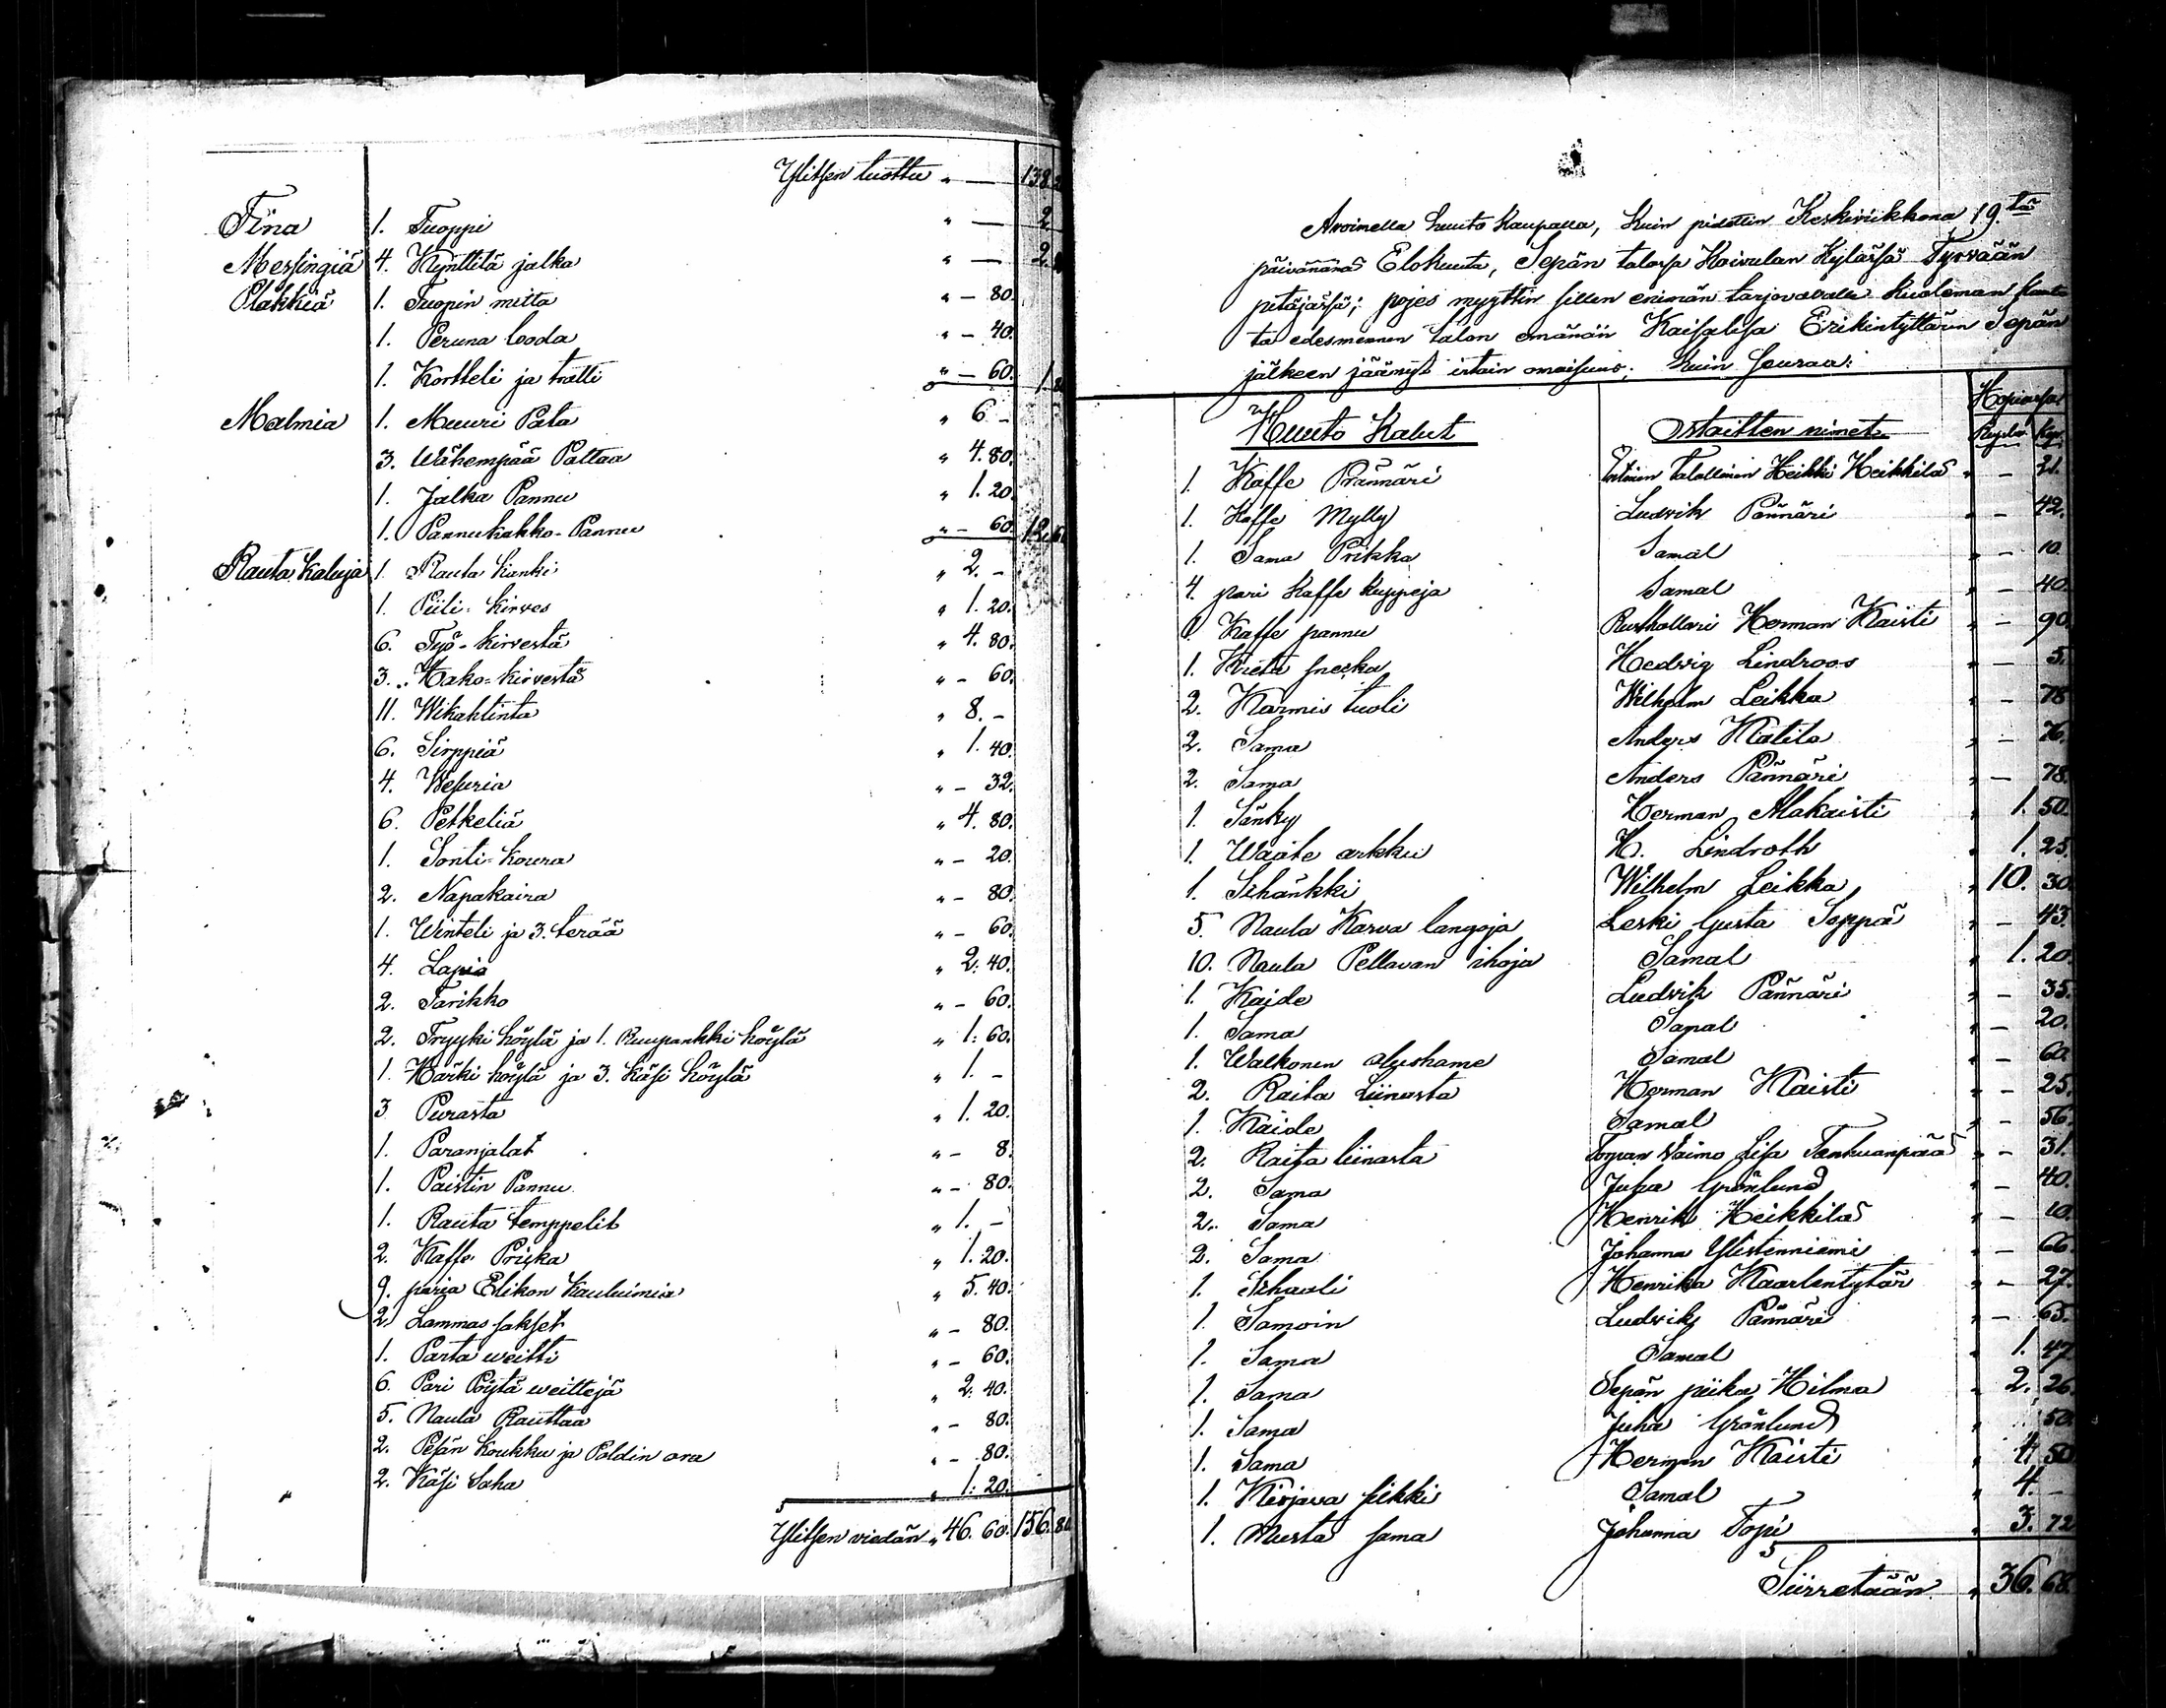 Ylitsen tuottu " — 138.2
Tina 1. Tuoppi " — 2
Messingiä 4. Kynttilä jalka " — 2.
Pläkkiä 1. Tuopin mitta " — 80.
1. Peruna looda " — 40.
1. Kortteli ja tratti " — 60. 1.80
Malmia 1. Muuri Pata " 6 –
3. Wähempää Pattaa " 4.80.
1. Jalka Pannu " 1.20.
1. Pannukakko-Pannu " — 60. 12.60
Rauta kaluja 1. Rauta kanki " 2. –
1. Piili-kirves " 1.20.
6. Työ-kirvestä " 4.80.
3. Hako-kirvestä " – 60.
11. Wikahtinta " 8. –
6. Sirppiä " 1.40.
4. Wesuria " – 32.
6. Petkeliä " 4.80.
1. Sonti-koura " – 20.
2. Napakaira " – 80.
1. Winteli ja 3. terää " – 60.
4. Lapio " 2.40.
2. Tarikko " – 60.
2. Tryyki höylä ja 1. Ruupankki höylä " 1.60.
1. Härki höylä ja 3. käsi höylä " 1. –
3 Purasta " 1.20.
1. Paranjalat " – 8.
1. Paistin Pannu " – 80.
1. Rauta temppelit " 1. –
2. Kaffe Prikka " 1.20.
9. paria Elikon kauluimia " 5.40.
2. Lammas sakset " – 80.
1. Parta weitti " – 60.
6. Pari Pöytä weittejä " 2.40.
5. Naula Rauttaa " – 80.
2. Pesän koukku ja Poldin ora " – 80.
2. Käsi Saha " 1.20.
Ylitsen viedän " 46.60. 156.80
Avoimella huuto kaupalla, kuin pidettin Keskiviikkona 19.tä
päivänänä Elokuuta, Sepän talossa Koivulan Kylässä Tyrvään
pitäjässä; pojes myyttin sillen enimän tarjovavalle kuoleman kautta
ta edesmennen talon emänän Kaisalisa Erikintyttären Sepän
jälkeen jäänyt irtain omaisuus, kuin seuraa:
Huuto Kalut Ostaitten nimet Hopiassa Rupla Kop.
1. Kaffe Prännäri Talollinen Heikki Heikkilä " – 21.
1. Kaffe Mylly Ludvik Pännäri " – 42.
1. Sama Prikka Samal " – 10.
4. pari kaffe kuppeja Samal " – 40.
1. Kaffe pannu Rusthollari Herman Kaisti " – 90.
1. Hedvig Lindroos " – 5.
2. Karmis tuoli Wilhelm Leikka " – 78
2. Sama Anders Mätilä " – 76.
2. Sama Anders Pännäri " – 78.
1. Sänky Herman Alakaisti " 1.50.
1. Waate arkku H. Lindroth " 1.25.
1. Schänkki Wilhelm Leikka " 10.30.
5. Naula Karva langoja Leski Gusta Seppä " – 43.
10. Naula Pellavan ihoja Samal " 1.20.
1. Kaide Ludvik Pännäri " – 35.
1. Sama Samal " – 20.
1. Walkonen alushame Samal " – 60.
2. Raita Liinasta Herman Kaisti " – 25.
1. Kaide Samal " – 56.
2. Raita liinasta Torpan Vaimo Lisa Tanhuanpää " – 31.
2. Sama Juha Grönlund " – 40.
2. Sama Henrik Heikkilä " – 10.
2. Sama Johanna Ylistenniemi " – 66.
1. Schauli Henrika Kaarlentytär " – 27.
1. Samoin Ludvik Pännäri " – 65.
1. Sama Samal 1.47
1. Sama Sepän piika Hilma " 2.26.
1. Sama Juha Grönlund " 50.
1. Sama Herman Kaisti " 4.50
1. Kirjava silkki Samal " 4. –
1. Musta sama Johanna Topi " 3.72
Siirretään " 36.68.